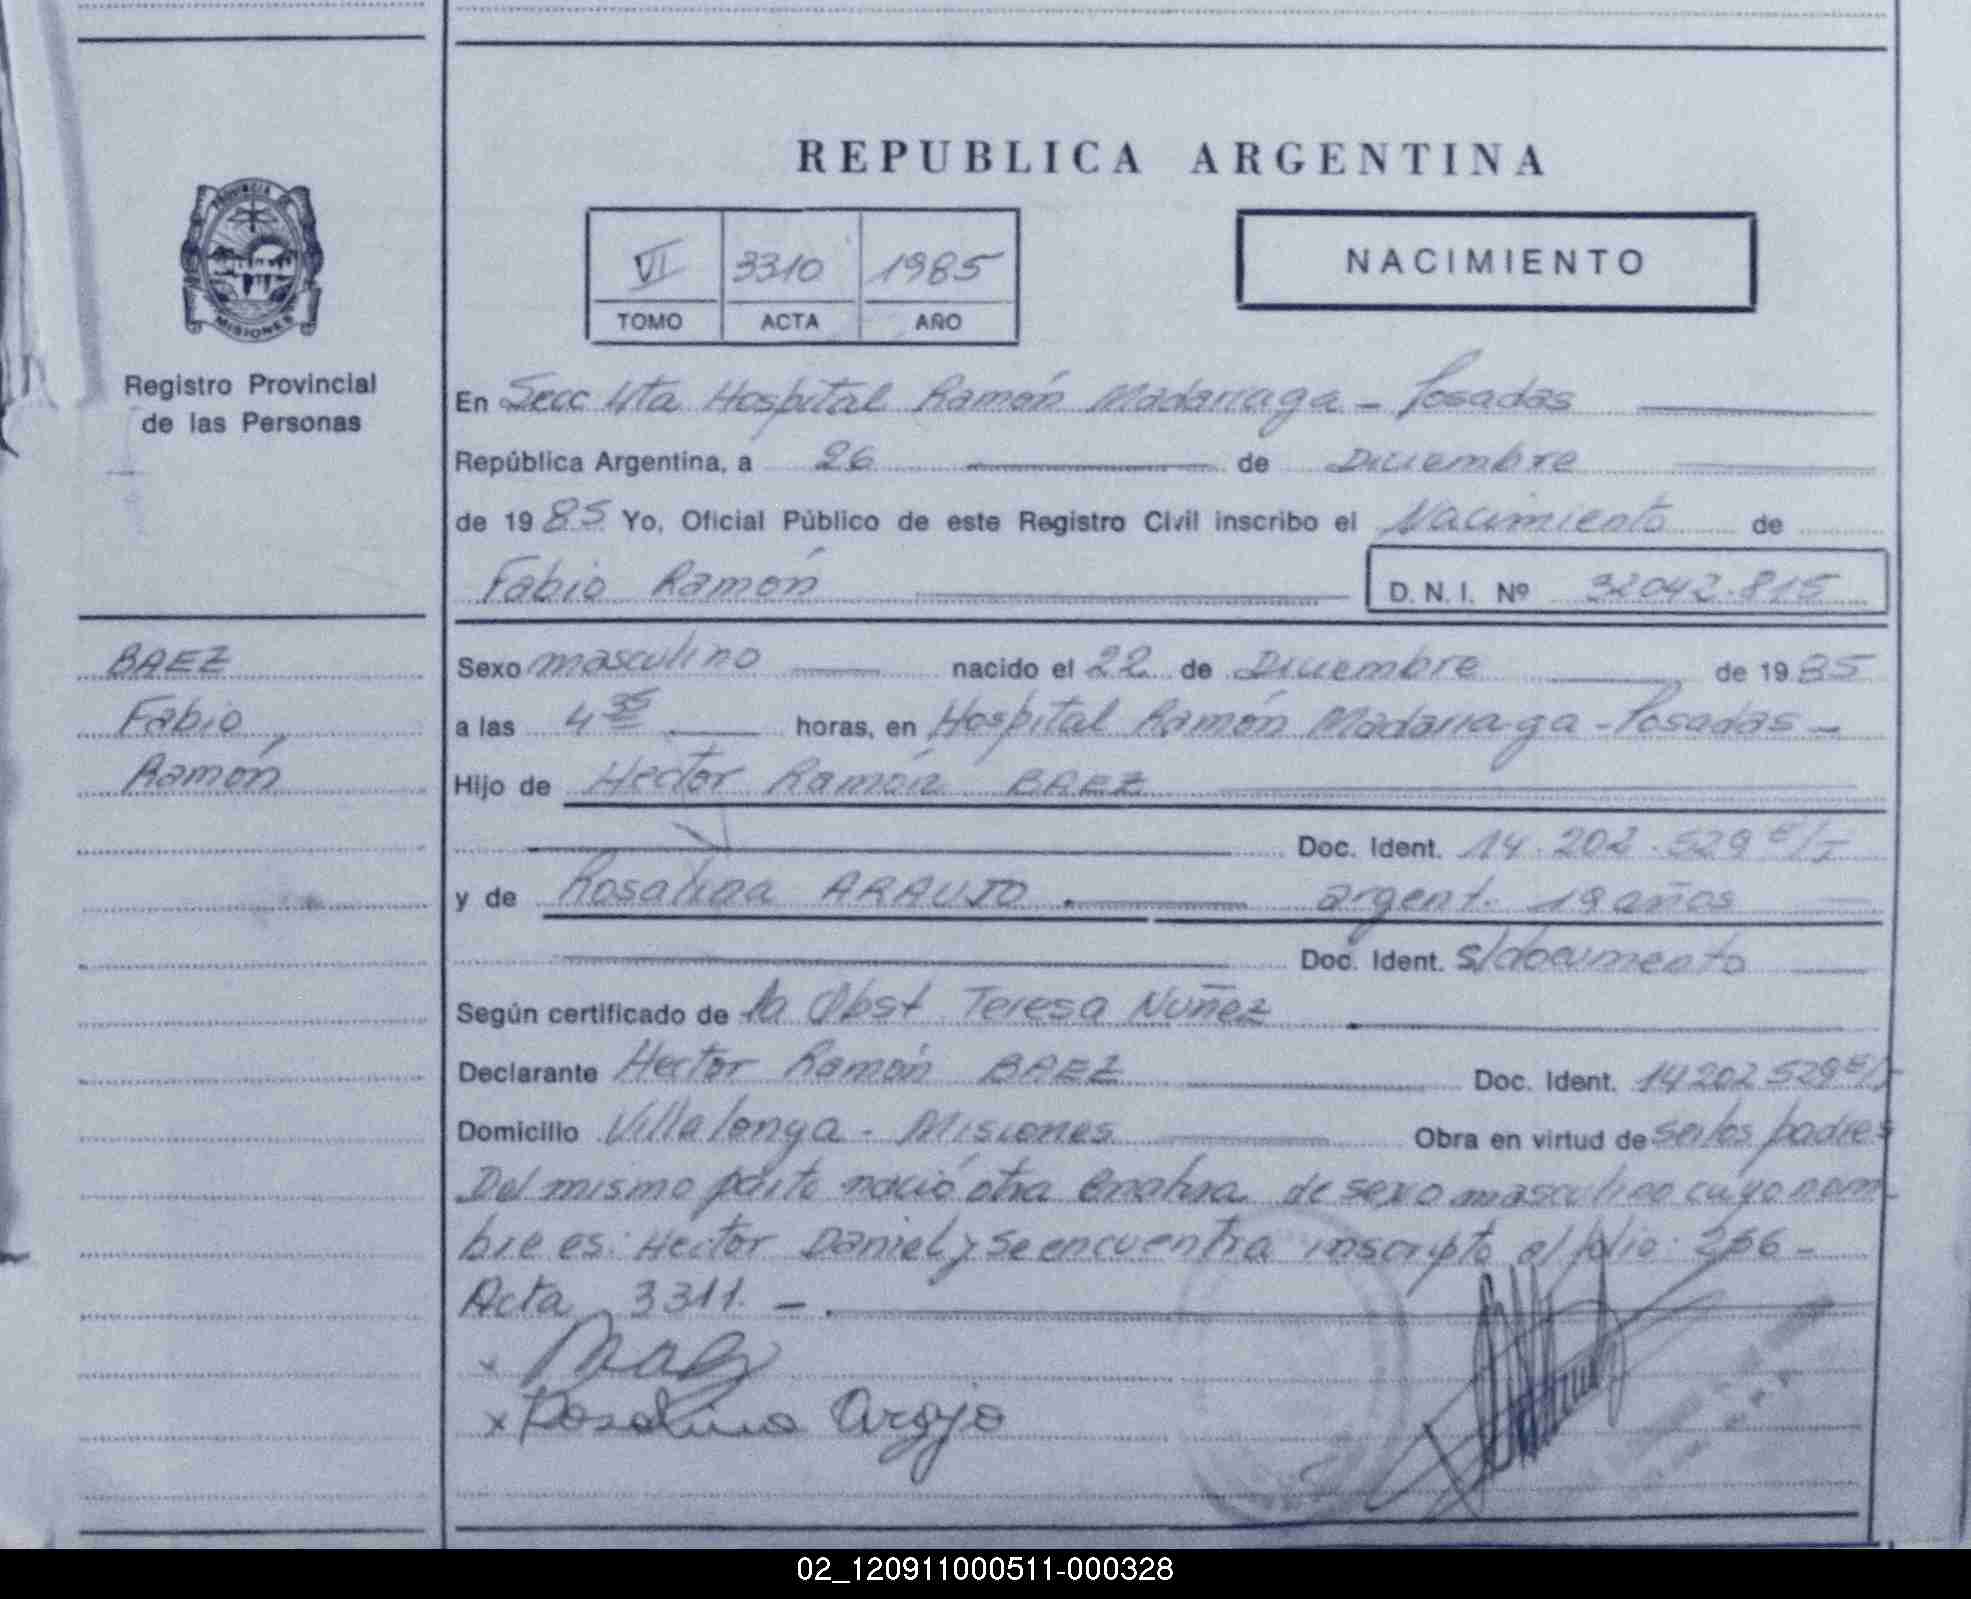 REPUBLICA ARGENTINA
PROVINCIA DE
MISIONES
Registro Provincial
de las Personas
VI 3310 1985
TOMO ACTA AÑO
NACIMIENTO
En Secc 4ta Hospital Ramón Madarriaga - Posadas
República Argentina, a 26 de Diciembre
de 1985 Yo, Oficial Público de este Registro Civil inscribo el Nacimiento de
Fabio Ramón D. N. I. Nº 32042.815
BAEZ
Fabio
Ramón
Sexo masculino nacido el 22 de Diciembre de 1985
a las 4 35 horas, en Hospital Ramón Madariaga - Posadas -
Hijo de Hector Ramón BAEZ
Doc. Ident. 14.202.529 E/T
y de Rosalina ARAUJO argent. 19 años
Doc. Ident. s/documento
Según certificado de la Obst Teresa Nuñez
Declarante Hector Ramón BAEZ Doc. Ident. 14202529 E/T
Domicilio Villalonga - Misiones Obra en virtud de ser los padres
Del mismo parto nació otra criatura de sexo masculino cuyo nom-
bre es: Hector Daniel y se encuentra inscripto al folio 256 -
Acta 3311. -
x
x Rosalina Arajo
02_120911000511-000328